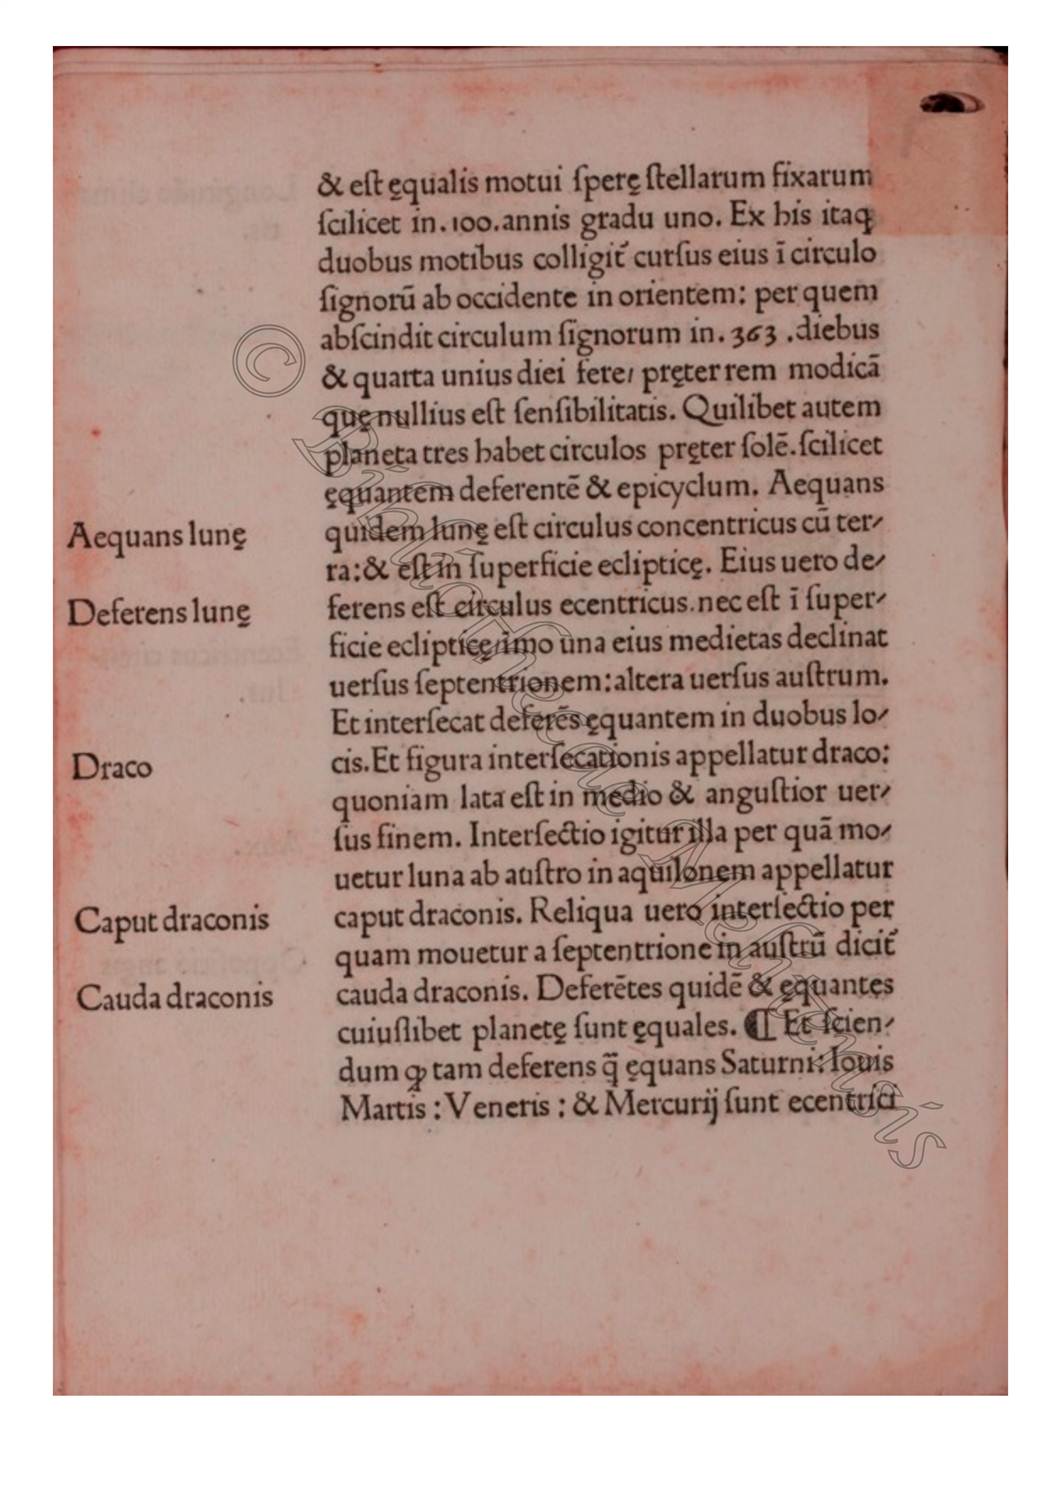 & eſt ęqualis motui ſperę ſtellarum fixarum
ſcilicet in .100. annis gradu uno. Ex his itaqꝫ
duobus motibus colligit᷑ curſus eius ī circulo
ſignorū ab occidente in orientem: per quem
abſcindit circulum ſignorum in .363 .diebus
& quarta unius diei fere/ pręter rem modicā
quę nullius eſt ſenſibilitatis. Quilibet autem
planeta tres habet circulos pręter ſolē. ſcilicet
ęquantem deferentē & epicyclum. Aequans
Aequans lunę
quidem lunę eſt circulus concentricus cū ter⸗
ra: & eſt in ſuperficie eclipticę. Eius uero de⸗
Deferens lunę
ferens eſt circulus ecentricus. nec eſt ī ſuper⸗
ficie eclipticę/imo una eius medietas declinat
uerſus ſeptentrionem: altera uerſus auſtrum.
Et interſecat deferēs ęquantem in duobus lo⸗
Draco
cis. Et figura interſecationis appellatur draco:
quoniam lata eſt in medio & anguſtior uer⸗
ſus finem. Interſectio igitur illa per quā mo⸗
uetur luna ab auſtro in aquilonem appellatur
Caput draconis
caput draconis. Reliqua uero interſectio per
quam mouetur a ſeptentrione in auſtrū dicit᷑
Cauda draconis
cauda draconis. Deferētes quidē & ęquantes
cuiuſlibet planetę ſunt ęquales. ¶ Et ſcien⸗
dum ꝙ tam deferens q̄ ęquans Saturni: Iouis
Martis : Veneris : & Mercurij ſunt ecentrici
© Bibliotheca Mejanensis